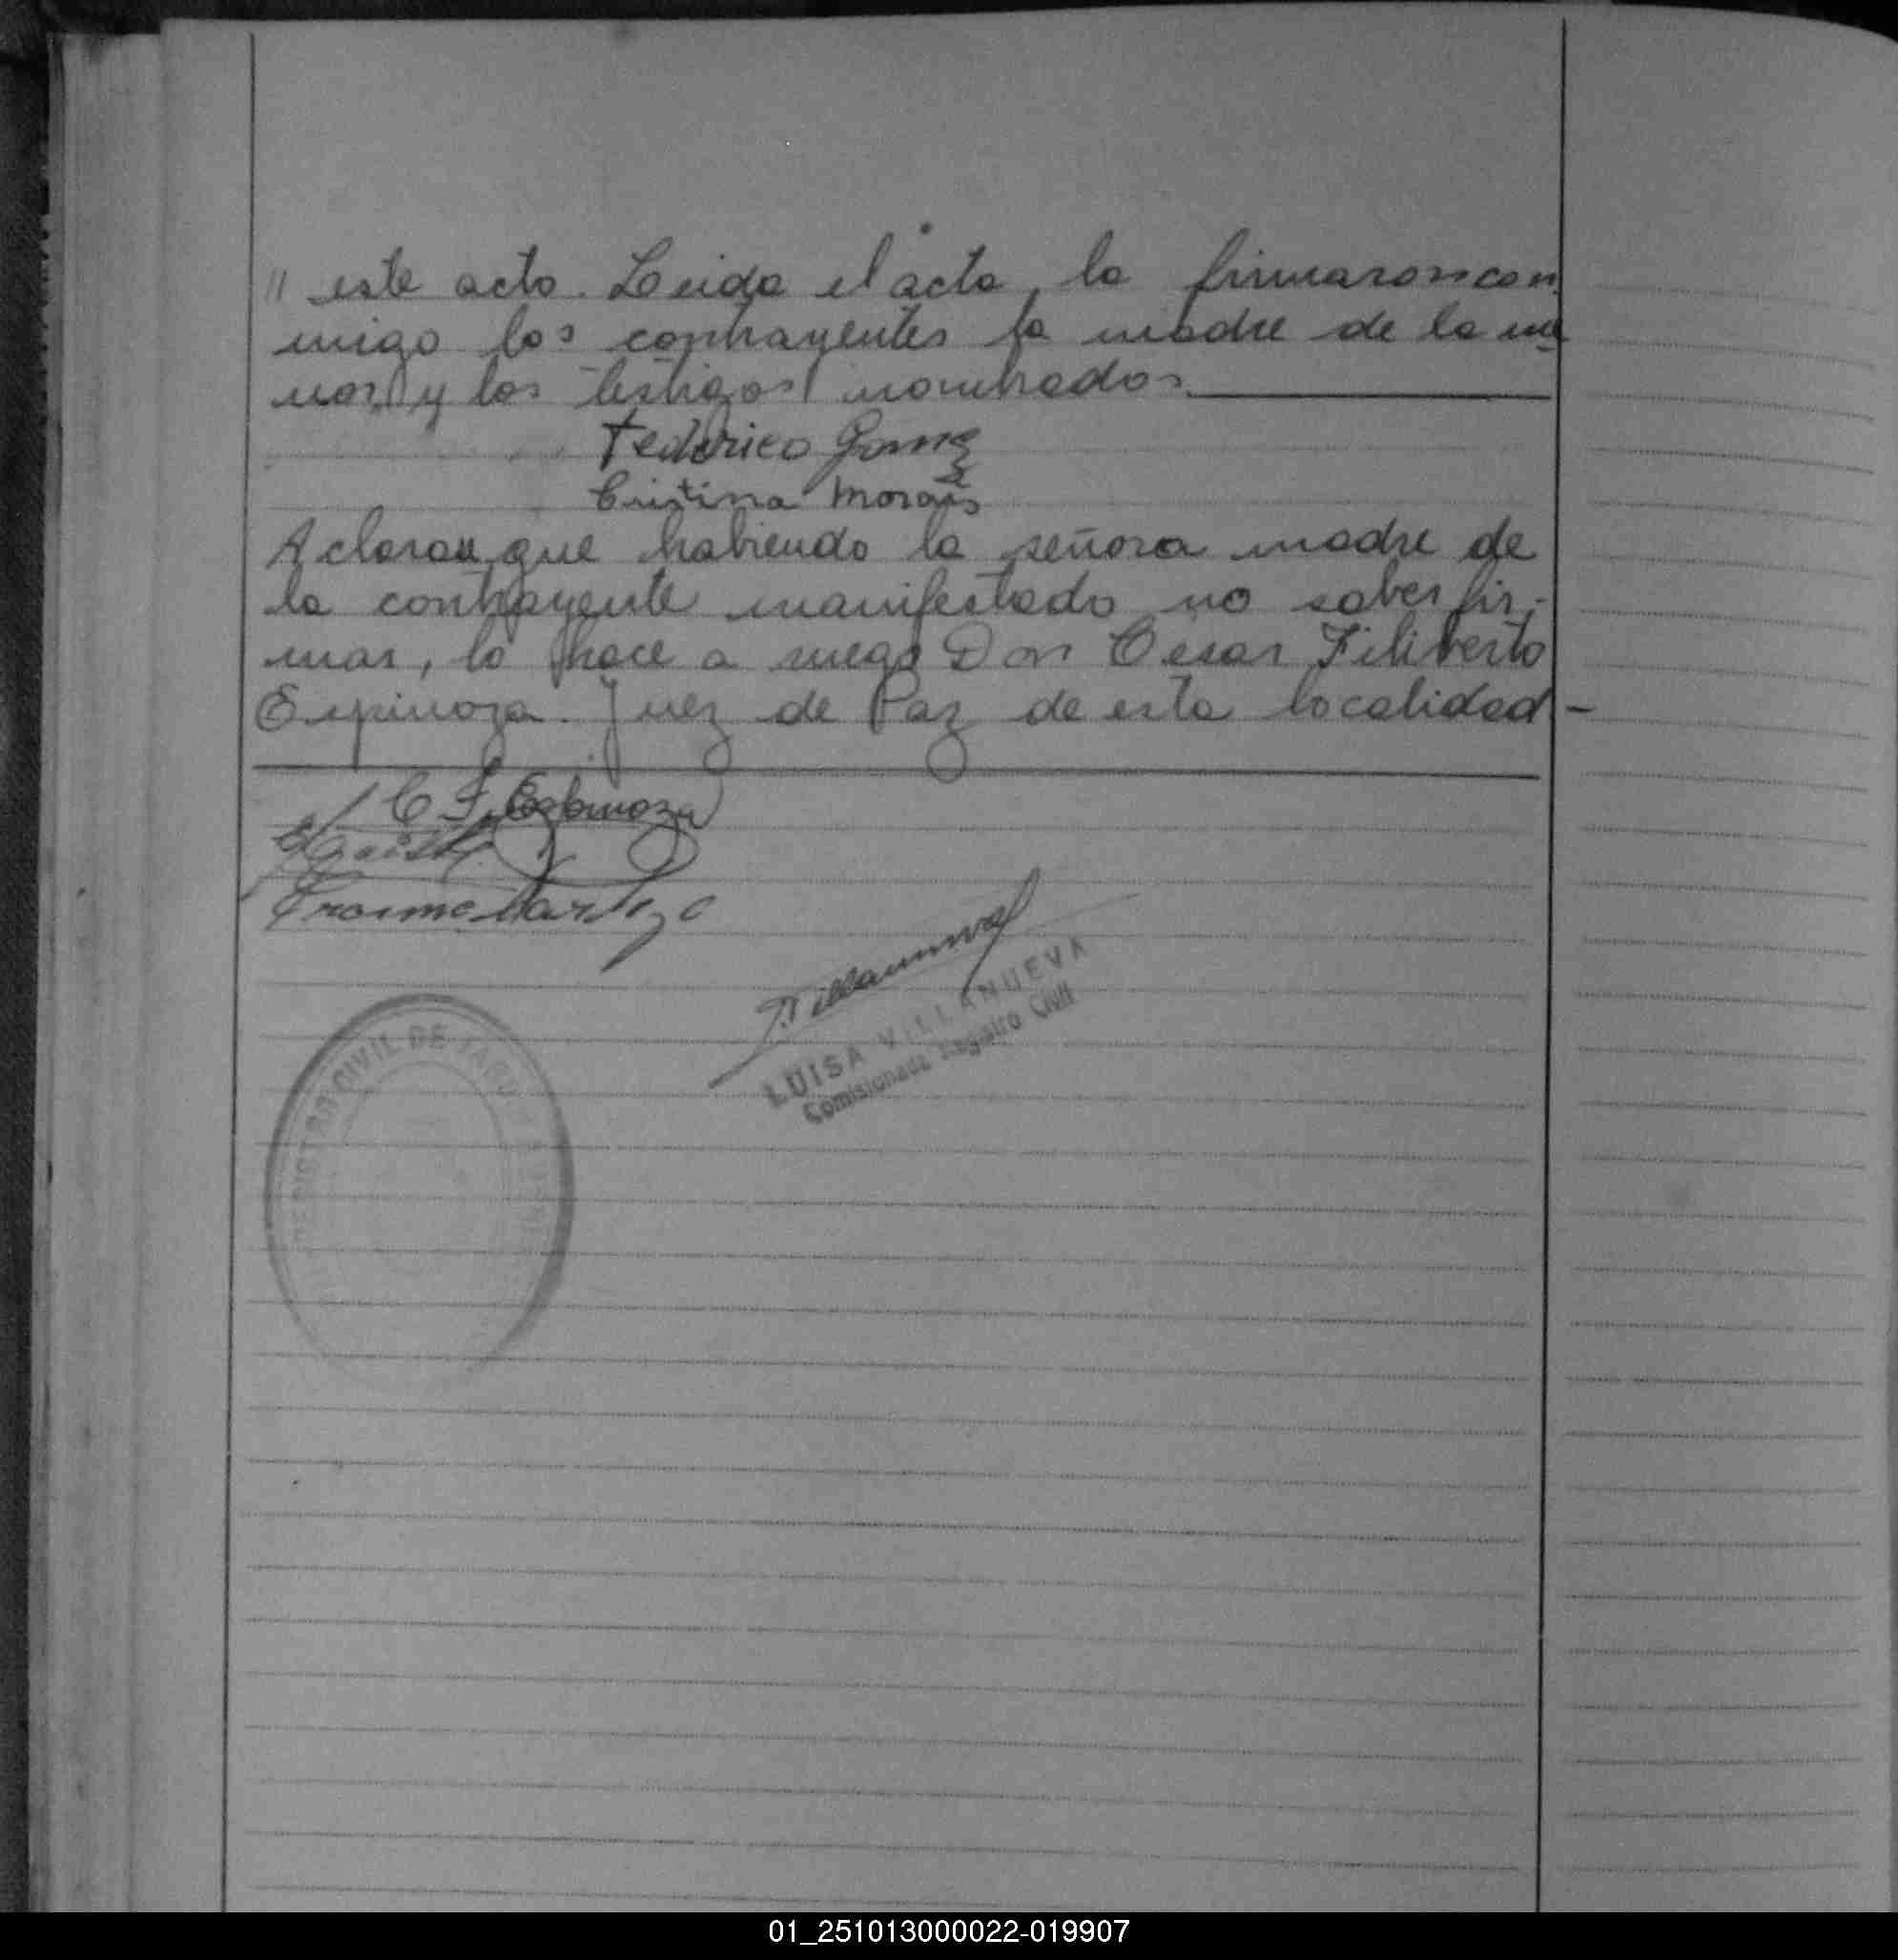 " este acto. Leida el acta, la firmaron con
migo los contrayentes la madre de la me
nor y los testigos nombrados.
Federico Gomez
Cristina Morais
Aclarau que habiendo la señora madre de
la contrayente manifestado no saber fir-
mar, lo hace a ruego Don Cesar Filiberto
Espinoza. Juez de Paz de esta localidad -
C F Espinoza
Villanueva
LUISA VILLANUEVA
Comisionada Registro Civil
REGISTRO CIVIL DE
01_251013000022-019907